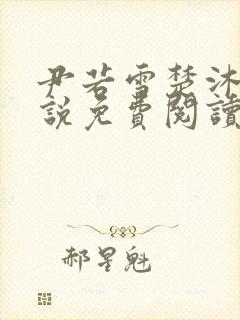 尹若雪楚沐
說免費閱讀
郝星魁